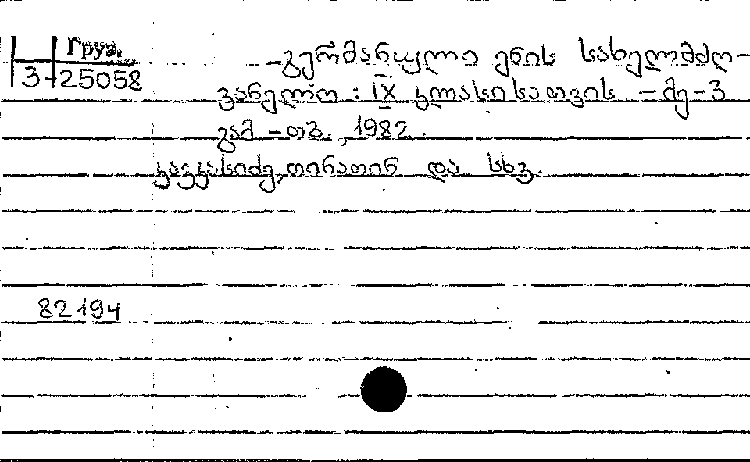 Груз.
3-25058
-გერმანული ენის სახელმძღ-
ვანელო : IX კლასისათვის -მე-3
გამ -თბ., 1982.
კავკასიძე, თინათინ და სხვ.
82194